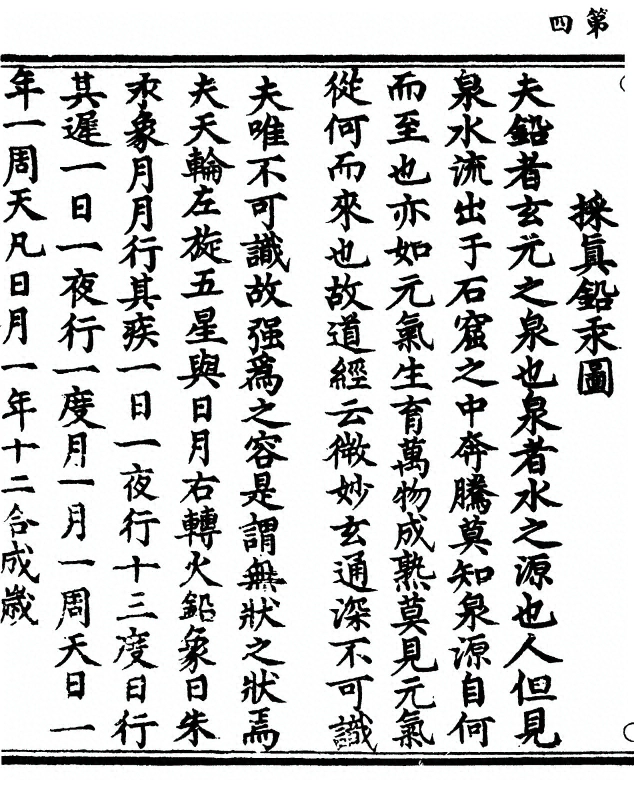 第四
採眞鉛汞圖
夫鉛者玄元之泉也泉者水之源也人但見
泉水流出于石窟之中奔騰莫知泉源自何
而至也亦如元氣生育萬物成熟莫見元氣
從何而來也故道經云微妙玄通深不可識
夫唯不可識故强爲之容是謂無狀之狀焉
夫天輪左旋五星與日月右轉火鉛象日朱
汞象月月行其疾一日一夜行十三度日行
其遲一日一夜行一度月一月一周天日一
年一周天凡日月一年十二合成歲